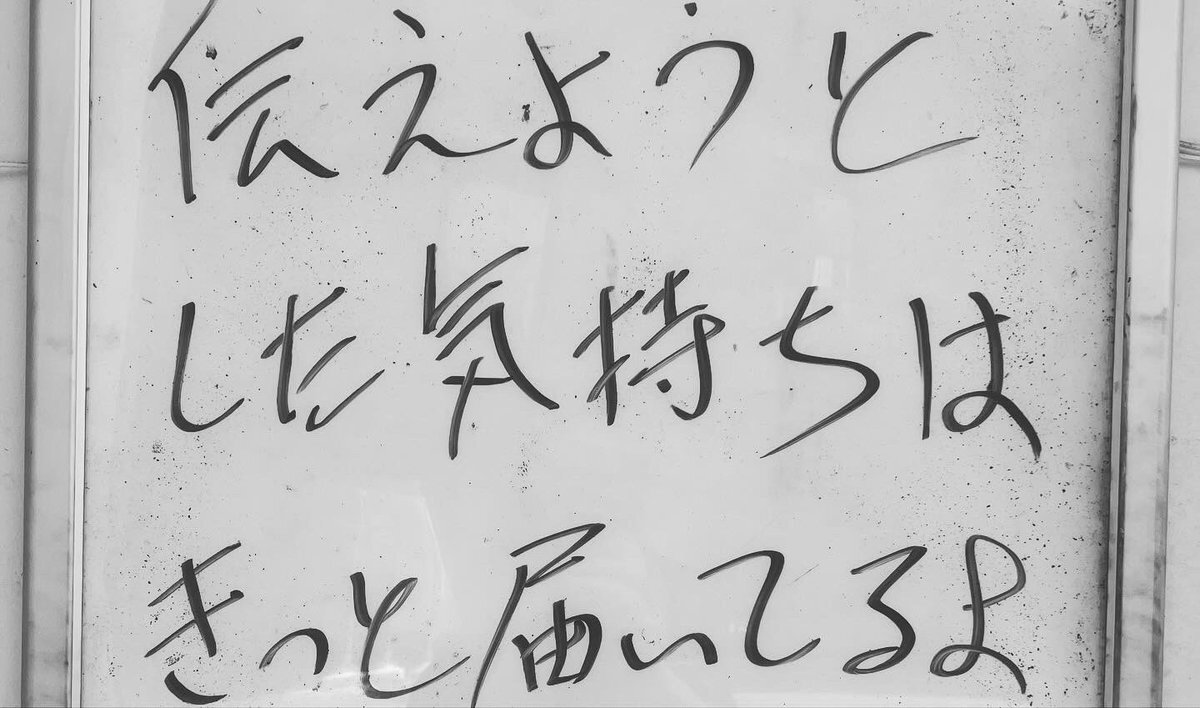 伝えようと
した気持ちは
きっと届いてるよ